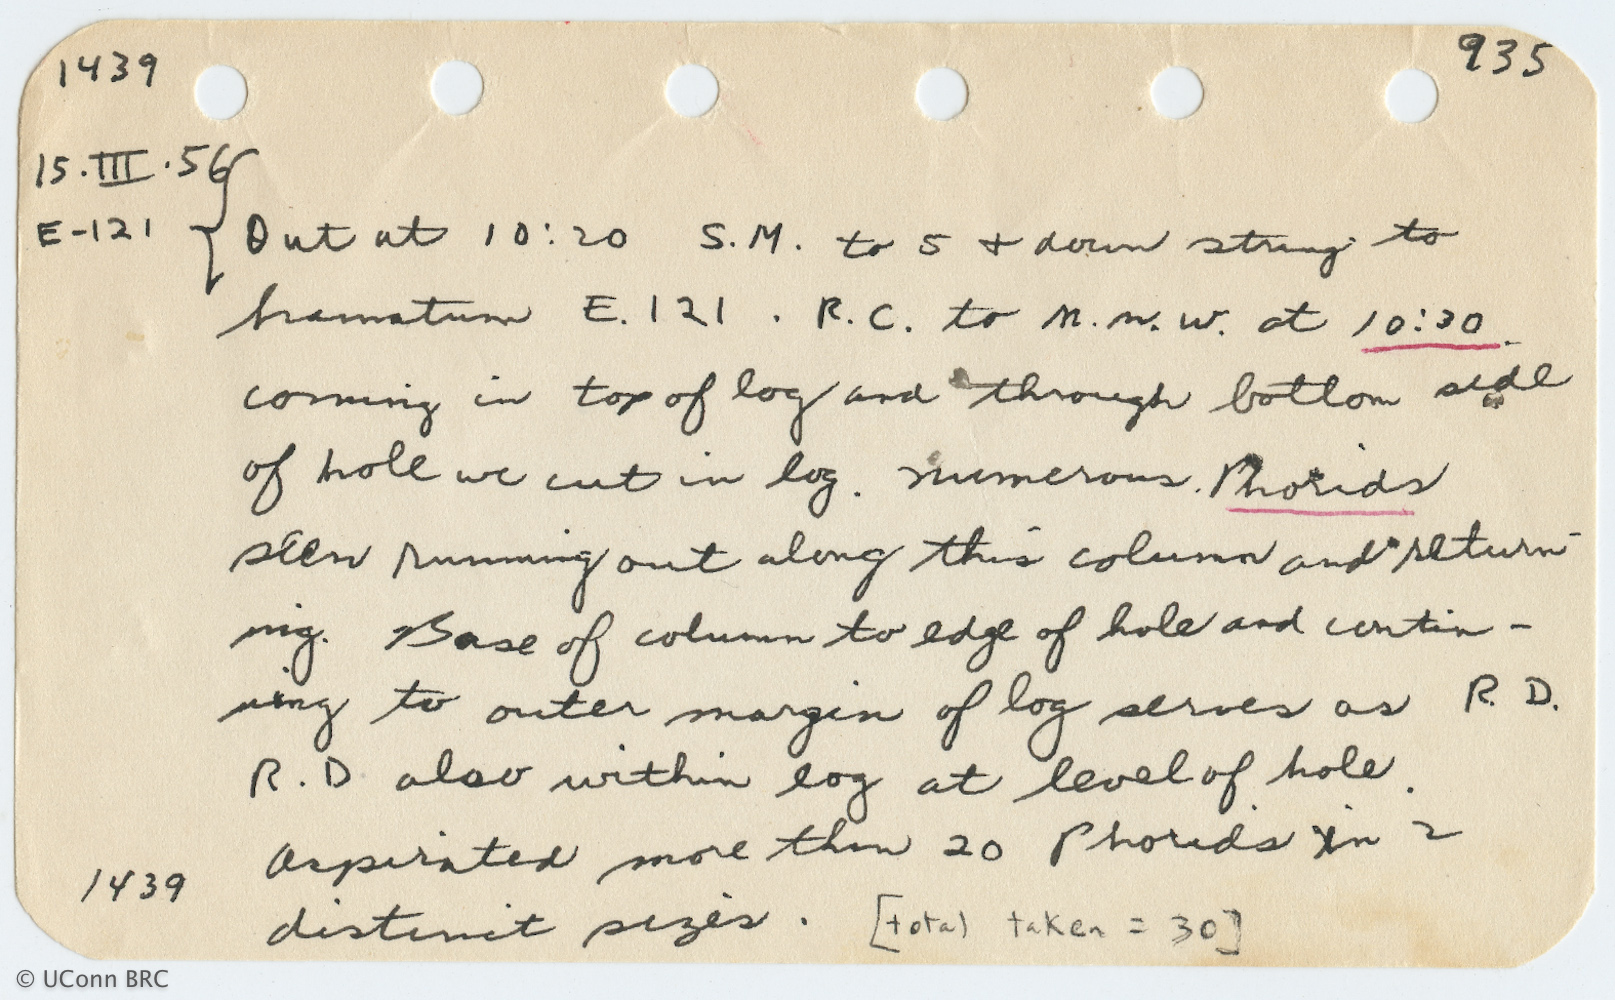 1439 935
15.III.56
E-121 { Out at 10:20 S.M. to 5 + down string to
hamatum E.121. R.C. to N.N.W. at 10:30.
coming in top of log and through bottom side
of hole we cut in log. Numerous Phorids
seen running out along this column and return-
ing. Base of column to edge of hole and contin-
uing to outer margin of log serves as R.D.
R.D also within log at level of hole.
Aspirated more than 20 Phorids in 2
1439
distinct sizes. [total taken = 30]
© UConn BRC